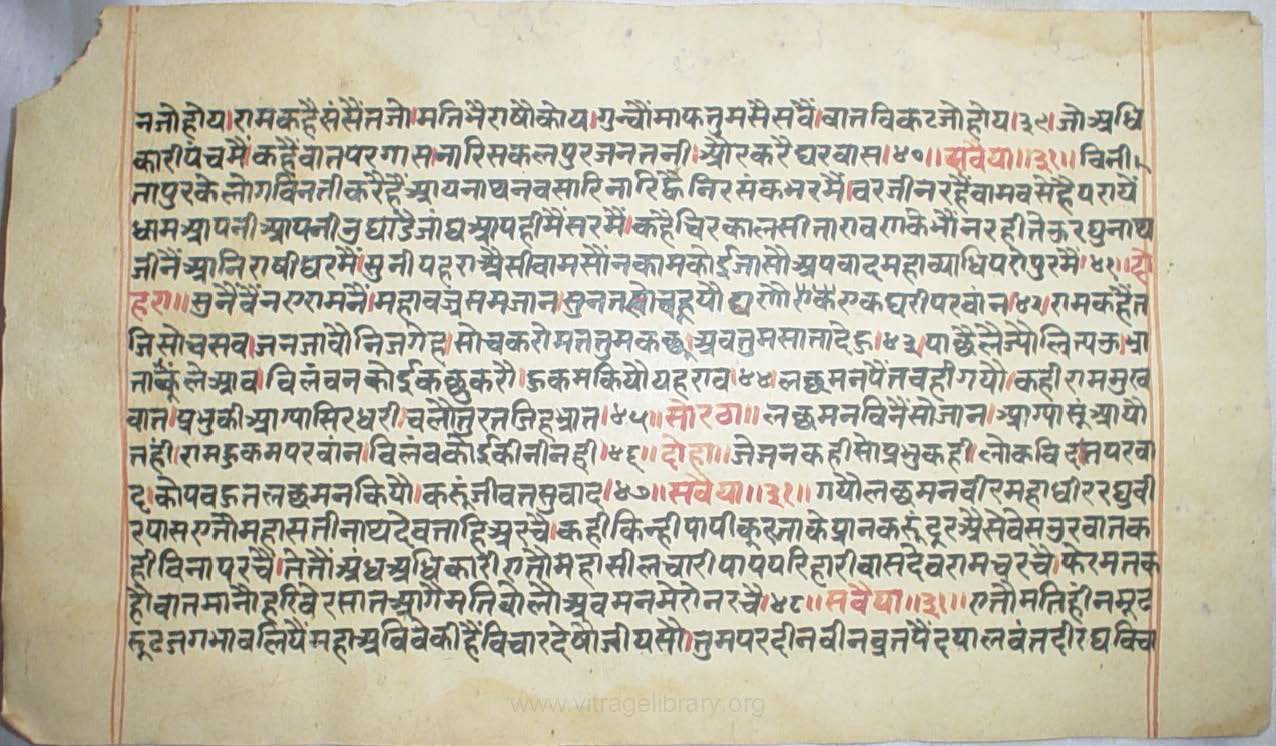 नजोहोय।रामकहैसंसैंतजो।मतिभैराषौकोय।गुन्हौंमाफतुमसैसबैं।बातविकटजोहोय।३९।जोअधि
कारीपंचमैं।कहैंबातपरगास।नारिसकलपुरजनतनी।औरकरैघरवास।४०॥सवैया॥३१॥विनी
तापुरकेलोगविनतीकरैहैंआयनाथनवसारिनारिह्वैनिरसंकभरमैं।वरजीनरहैंवामवसेहैंपरायें
धामआपनीआपनीउघाडैजांघआपहीमैंसरमैं।कहैचिरकालसीतारावणकेभौंनरहीतेऊरघुनाथ
जीनैंआनिराषीघरमैं।सुनीपहराअैसीवामसौंनकामकोईजासौअपवादमहाव्याधिपरीपुरमैं।४१॥दो
हरा॥सुनैंवैंनएरामनैं।महावज्रसमजान।सुनत
रामकहैंत
जिसोचसव।जनजावौनिजगेह।सोचकरोमततुमकछू।अवतुमसातादेह।४३।पाछैलै
भ्रा
ताकूंलेआव।विलंवनकोईकछुकरौ।हुकमकियौयहराव।४४।लछमनपैंतवहीगयौ।कहीराममुख
वात।प्रभुकीआग्यासिरधरी।चलौतुरतजिहभ्रात।४५॥सोरठा॥लछमनविनैंसोजान।आग्यासूंआयौ
तहीं।रामहुकमपरवांन।विलंवकोईकीनीनही।४६॥दोहा॥जेजनकहीसोप्रभुकही।लोकविदितपरवा
द।कोपवहुतलछमनकियौ।करूंजीवतसुवाद।४७॥सवैया॥३१॥गयौलछमनवीरमहाधीररघुवी
रपासएतौमहासतीनाथदेवताहिअरचै।कहीकिन्हीपापीकूरताकेप्रानकरूंदूरअैसेवेसऊरवातक
हीविनापरचै।तेतौंअंधअधिकारीएतौमहासीलधारीपापपरिहारीवासदेवरामचरचै।फेरमतक
हौवातमानौहरिवेरसातआगैंमतिवोलोअवमनमेरोनरचै।४८॥सवैया॥३१॥एतौमतिहींनमूढ
रूढजगभावलियैंमहाअविवेकीहैंविचारदेषोजीयसौ।तुमपरदीनवीनव्रतपैंदयालवंतदीरघ
www.vitragelibrary.org